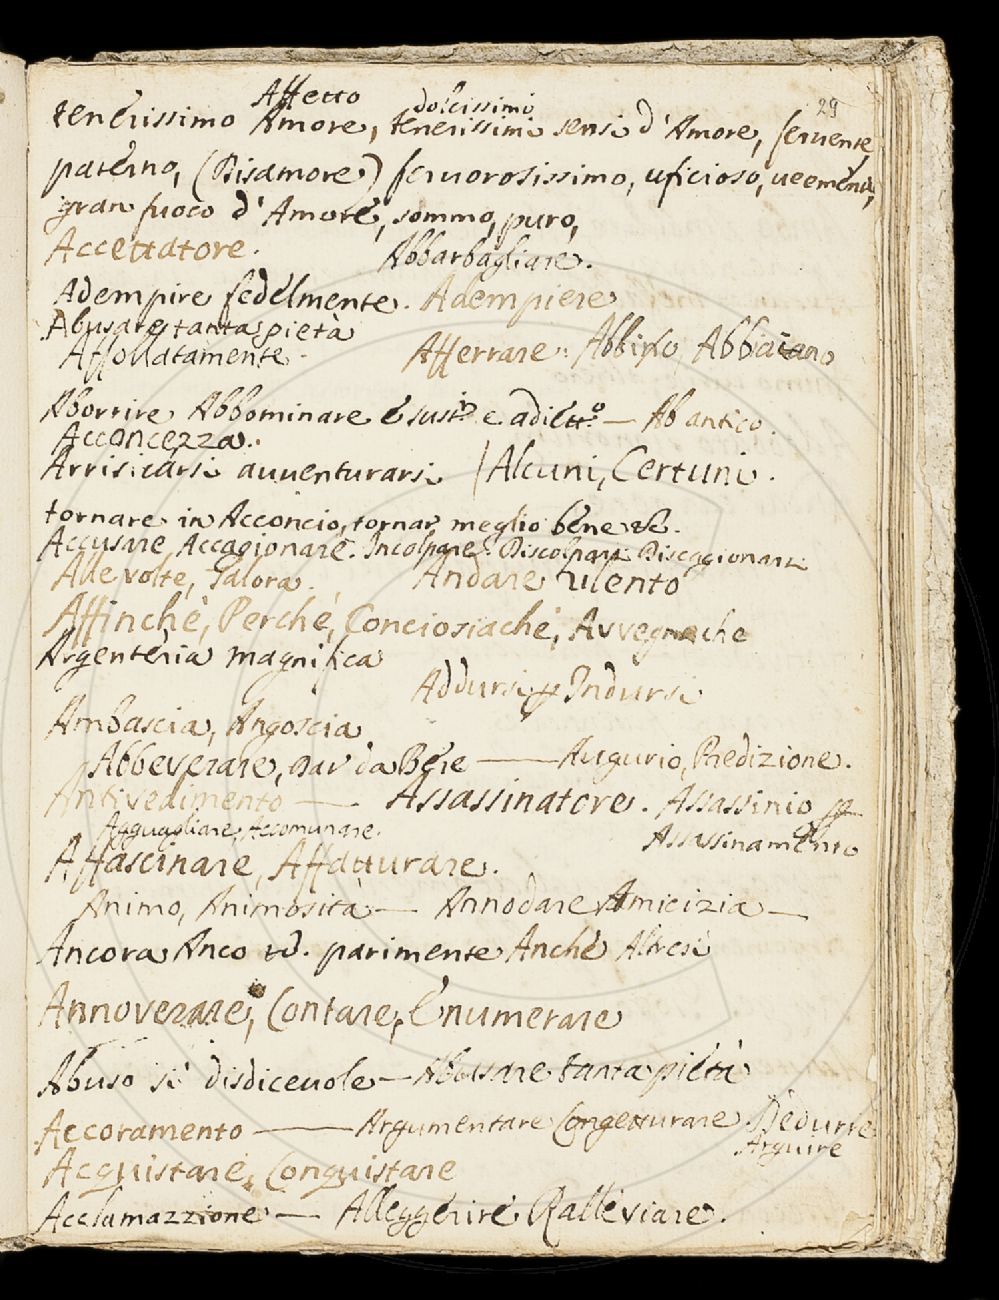 29
Affetto dolcissimi
tenerissimo Amore, tenerissimi sensi d'Amore, feruente,
paterno, (Disamore) feruorosissimo, uficioso, ueemente,
gran fuoco d'Amore, sommo, puro,
Accettatore. Abbarbagliare.
Adempire fedelmente. Adempiere
Abusare tanta pietà
Affollatamente. Afferrare. Abbisso Abbaiano
Aborrire Abbominare è sust.º e adiett.º — Ab antico.
Acconcezza.
Arrisicarsi auuenturarsi / Alcuni, Certuni.
tornare in Acconcio, tornar meglio bene
Accusare, Accagionare. Incolpare. Discolpare. Discagionare
Alle volte, Talora. Andare Lento
Affinchè, Perchè, Conciosiachè, Avvegnache
Argenteria magnifica
Addursi Indursi
Ambascia, Angoscia
Abbeverare, Dar da Bere — Augurio, Predizione.
Antivedimento — Assassinatore. Assassinio
Agguagliare, Accomunare. Assassinamento
Affascinare, Affatturare.
Animo, Animosità — Annodare Amicizia —
Ancora Anco parimente Anche Altresi
Annoverare, Contare, Enumerare
Abuso si disdiceuole — Abusare tanta pietà
Accoramento — Argumentare Congetturare Dedurre
Arguire
Acquistare, Conquistare
Acclamazzione — Alleggerire Ralleviare.